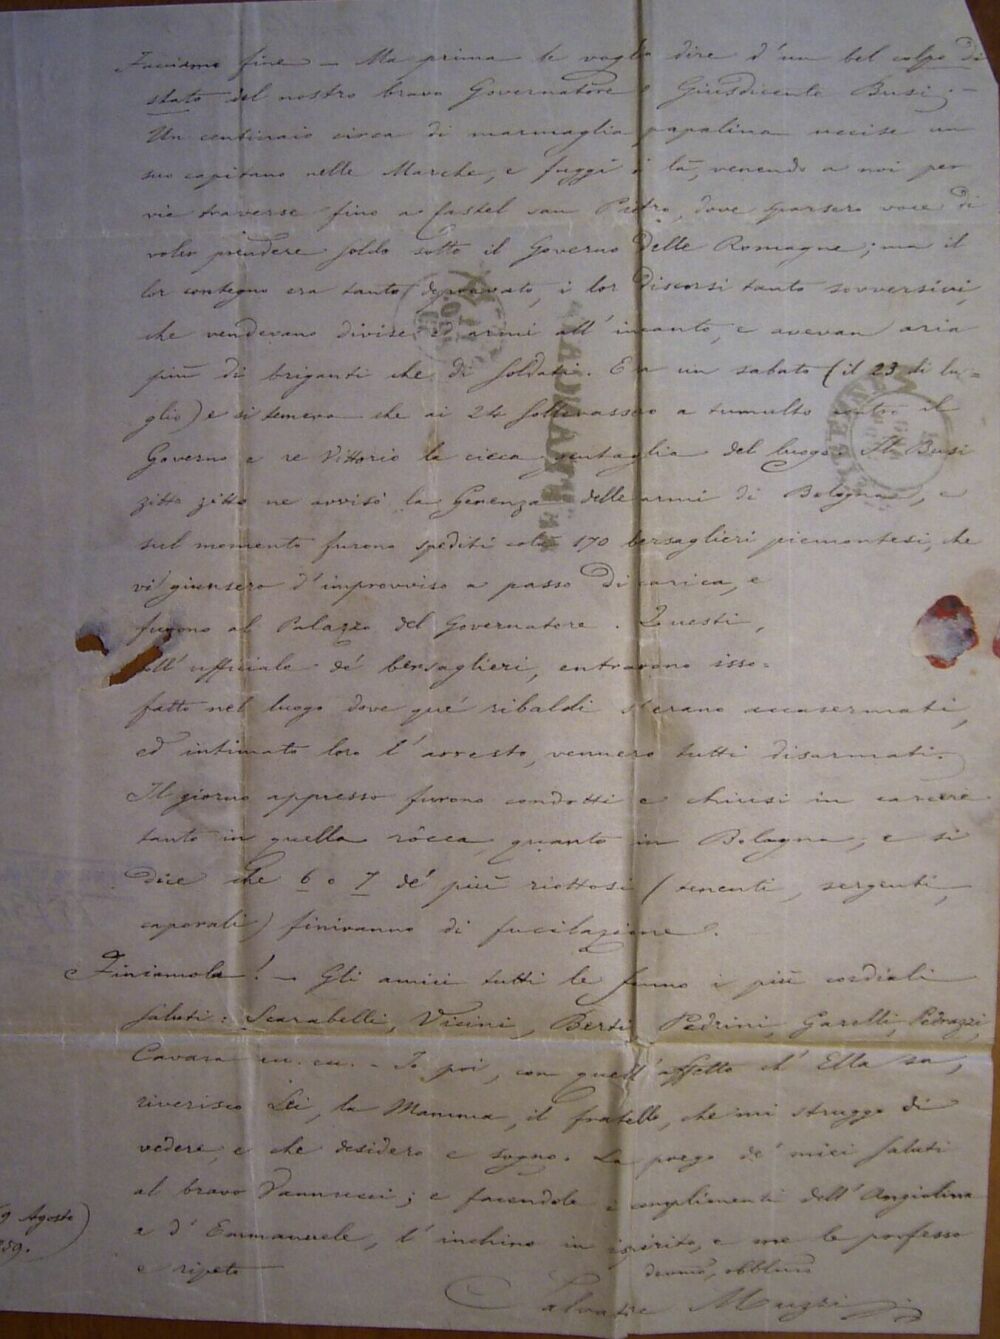 Facciamo fine — Ma prima le voglio dire d'un bel colpo di
stato del nostro bravo Governatore e Giusdicente Busi; —
Un centinaio circa di marmaglia papalina uccise un
suo capitano nelle Marche, e fuggì di là, venendo a noi per
vie traverse fino a Castel san Pietro, dove sparsero voce di
voler prendere soldo sotto il Governo delle Romagne; ma il
lor contegno era tanto depravato, i lor discorsi tanto sovversivi,
che vendevano divise e armi all'incanto, e avevan aria
più di briganti che di soldati. Era un sabato (il 23 di lu=
glio) e si temeva che ai 24 sollevassero a tumulto contro il
Governo e re Vittorio la cieca gentaglia del luogo. Il Busi
zitto zitto ne avvisò la Gerenza delle armi di Bologna, e
sul momento furono spediti colà 170 bersaglieri piemontesi, che
vi giunsero d'improvviso a passo di carica, e
furono al Palazzo del Governatore. Questi,
all'uffiziale de' bersaglieri, entrarono isso=
fatto nel luogo dove que' ribaldi s'erano accasermati,
ed intimato loro l'arresto, vennero tutti disarmati.
Il giorno appresso furono condotti e chiusi in carcere
tanto in quella ròcca quanto in Bologna, e si
dice che 6 o 7 de' più riottosi (tenenti, sergenti,
caporali) finiranno di fucilazione.
Finiamola! — Gli amici tutti le fanno i più cordiali
saluti: Scarabelli, Vicini, Berti, Pedrini, Garelli, Pedrazzi,
Cavara ec. ec. — Io poi, con quell'affetto ch'Ella sa,
riverisco Lei, la Mamma, il fratello, che mi struggo di
vedere, e che desidero e sogno. La prego de' miei saluti
al bravo Vannucci; e facendole i complimenti dell'Angiolina
e d'Emmanuele, l'inchino in ispirito, e me le professo
e ripeto
devmo, obblmo
Salvatore Muzzi
9 Agosto)
859.